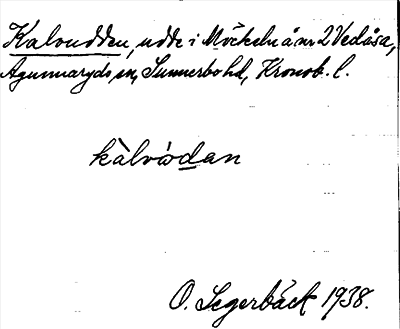 Kalvudden, udde i Möckeln å nr 2 Vedåsa,
Agunnaryds sn, Sunnerbo hd, Kronob. l.
kàlvùdan
O. Segerbäck 1938.